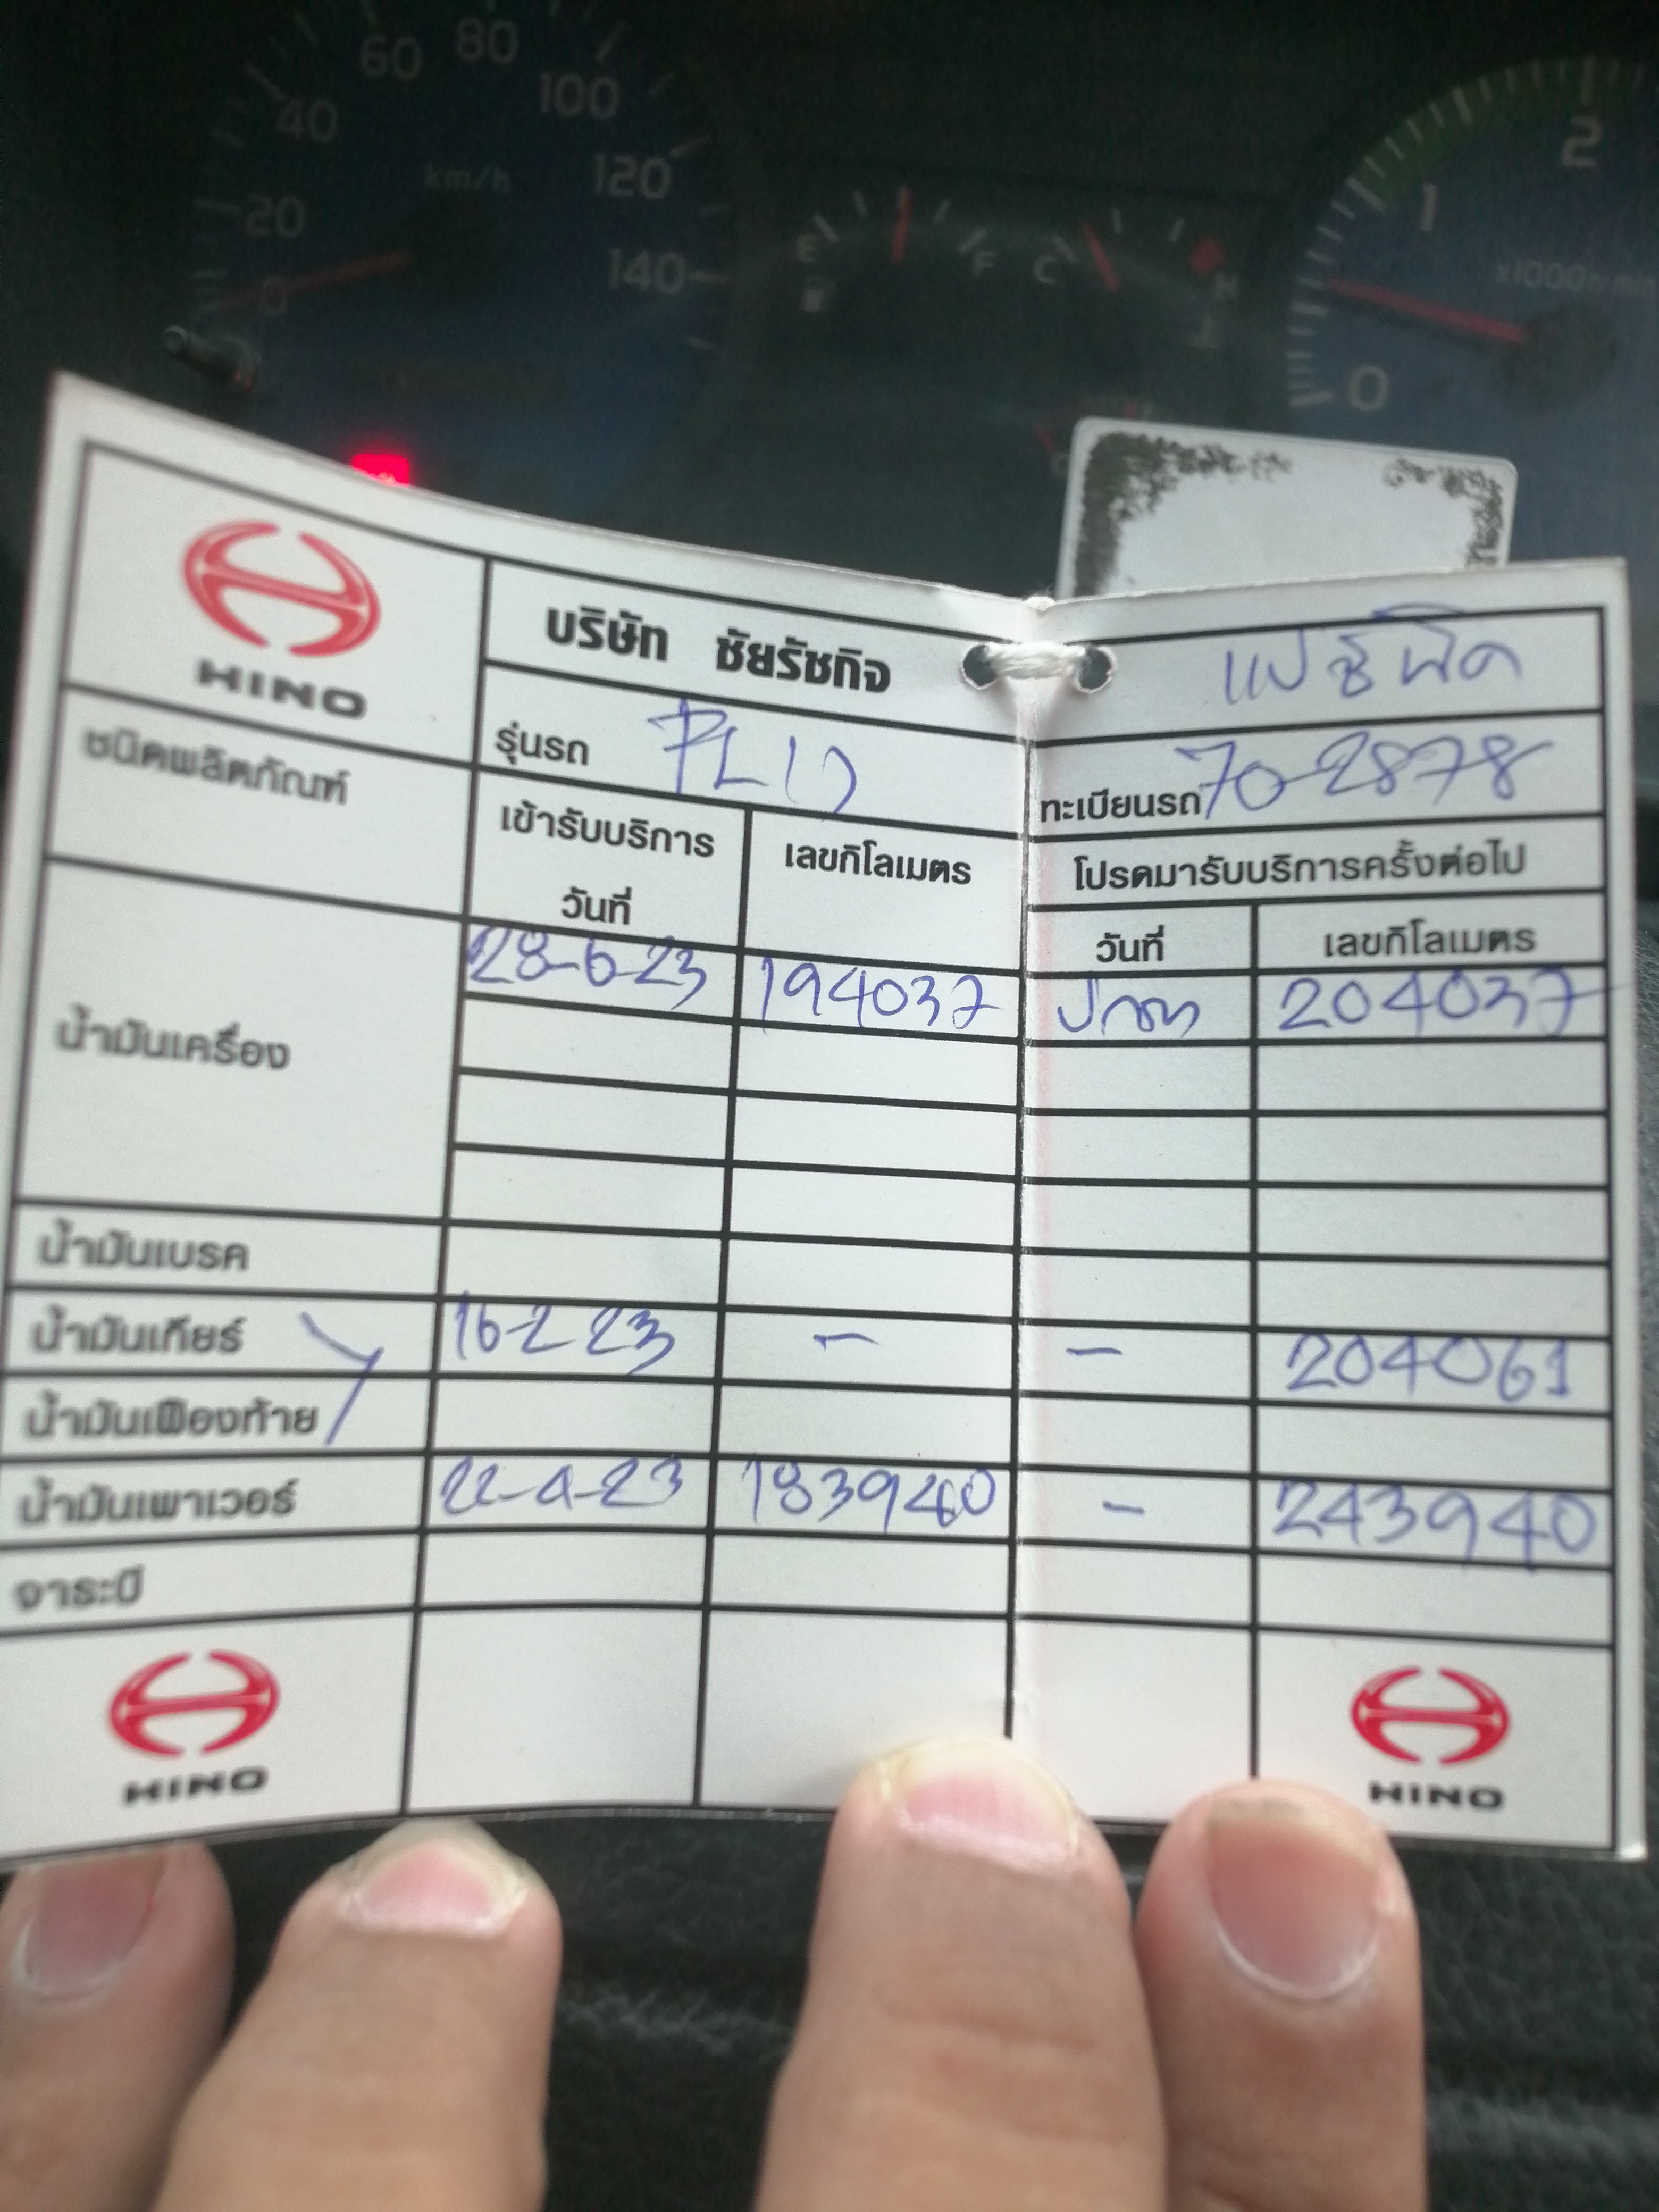 60 80
40 100
km/h 120
20
0 140
E F C H
1 2
x1000r/min
0
HINO
บริษัท ชัยรัชกิจ
รุ่นรถ
ทะเบียนรถ 70-2878
ชนิดผลิตภัณฑ์ เข้ารับบริการ เลขกิโลเมตร โปรดมารับบริการครั้งต่อไป
วันที่ วันที่ เลขกิโลเมตร
น้ำมันเครื่อง 28-6-23 194037 204037
น้ำมันเบรค
น้ำมันเกียร์ 16-2 23 - - 204061
น้ำมันเฟืองท้าย
น้ำมันเพาเวอร์ 22-4-23 183940 - 243940
จาระบี
HINO HINO